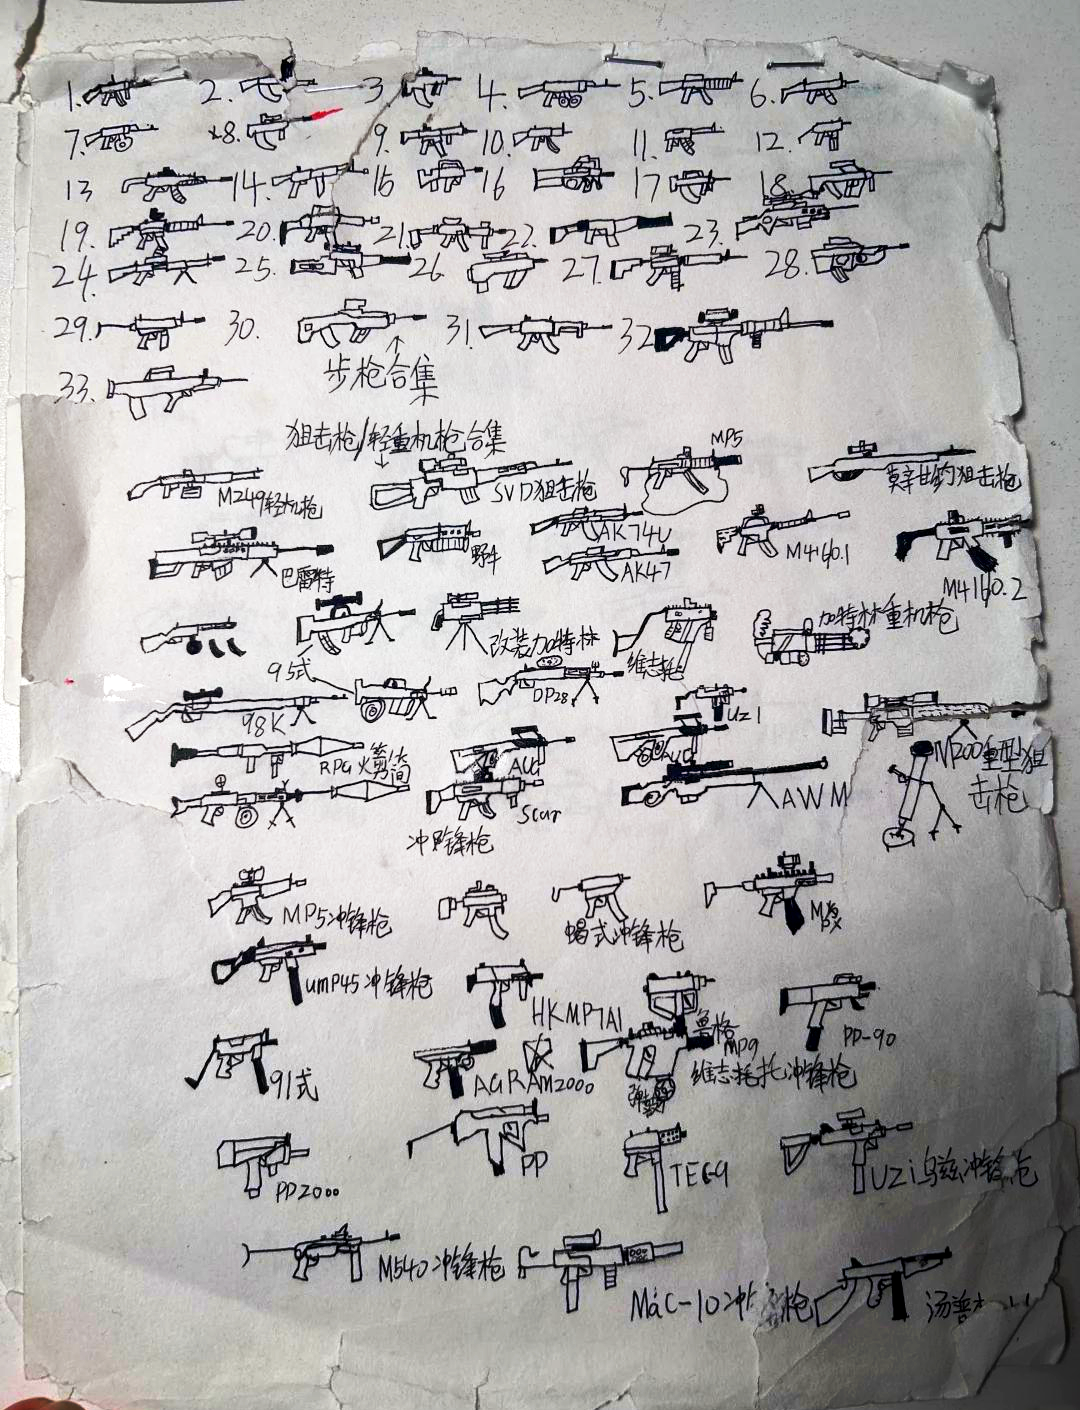 1. 2. 3 4. 5. 6.
7. 8. 9. 10. 11. 12.
13 14. 15 16 17 18.
19. 20. 21. 22. 23.
24. 25. 26. 27. 28.
29. 30. 31. 32
步枪合集
33.
狙击枪/轻重机枪合集
M249轻机枪 SVD狙击枪 MP5 莫辛甘纳狙击枪
巴雷特 野牛 AK74U M4160.1
AK47 M4160.2
95式 改装加特林 维志托 加特林重机枪
98K DP28 UZ1
RPG火箭筒 AUG M200重型狙
击枪
Scar AWM
冲锋枪
MP5冲锋枪 蝎式冲锋枪
UMP45冲锋枪 HKMP7A1 鲁格
MP9 PP-90
91式 AGRAM2000 维志托冲锋枪
PP2000 PP TEC9 UZi乌兹冲锋枪
M540冲锋枪 MaC-10冲锋枪 汤普